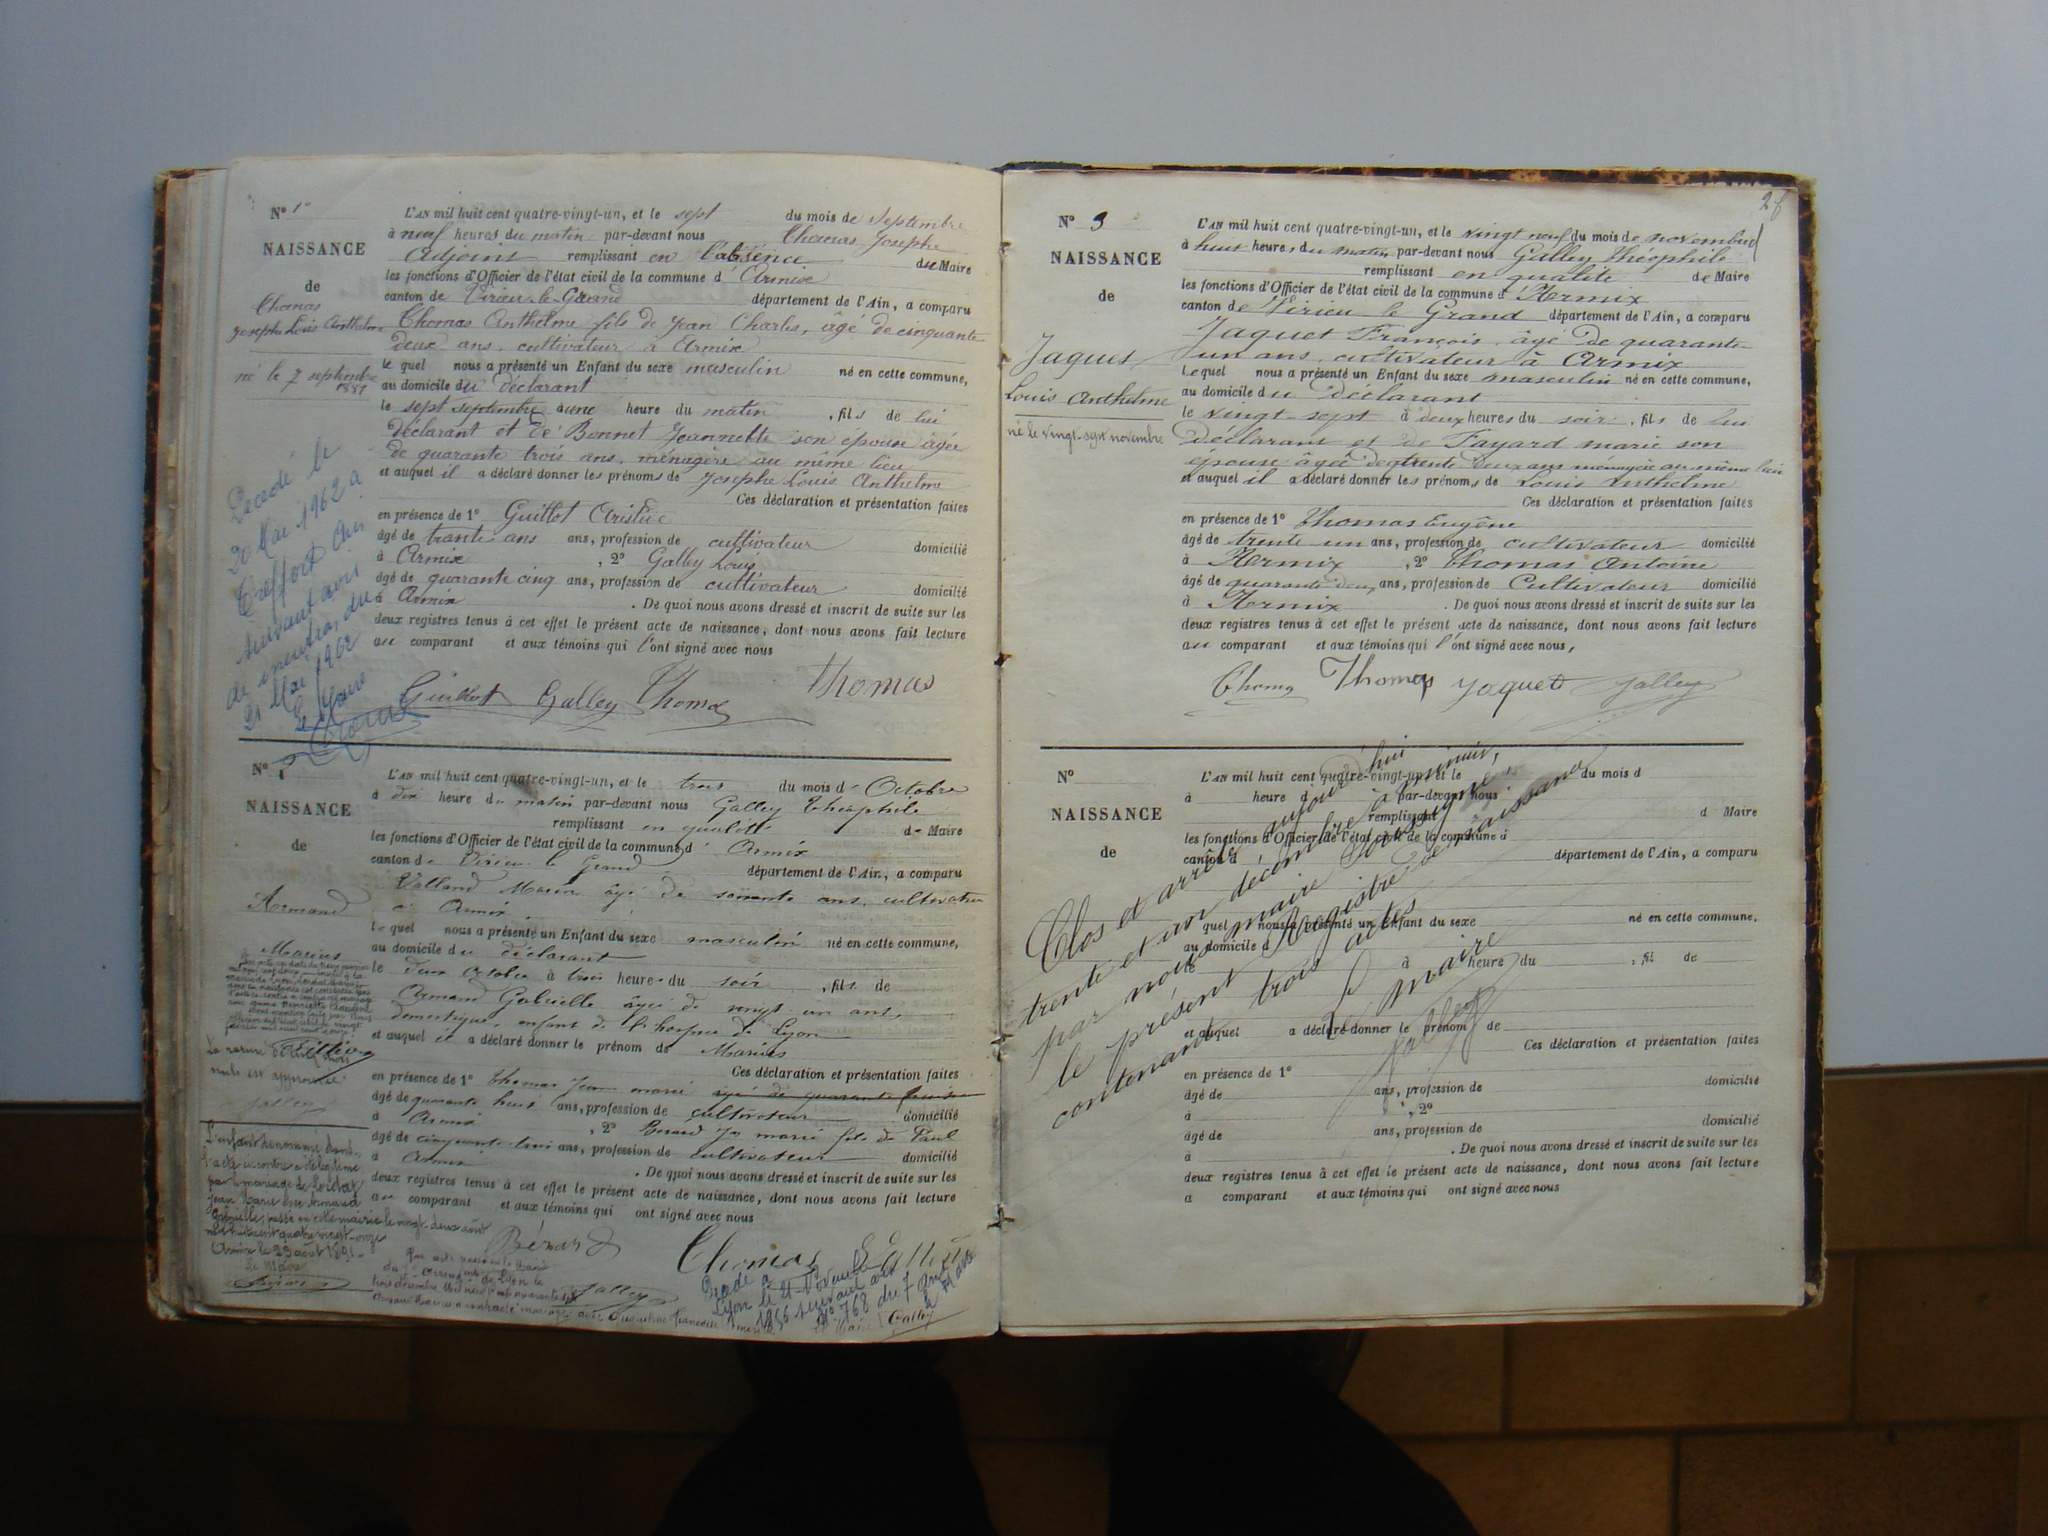 N° 1
NAISSANCE
de
Thomas
Josephe Louis Anthelme
né le 7 septembre
1881
L'AN mil huit cent quatre-vingt-un, et le sept du mois de Septembre
à neuf heures du matin par-devant nous Thomas Josephe
adjoint remplissant en l'absence du Maire
les fonctions d'Officier de l'état civil de la commune d'Armix
canton de Virieu-le-Grand département de l'Ain, a comparu
Thomas Anthelme fils de Jean Charles, âgé de cinquante
deux ans, cultivateur à Armix
le quel nous a présenté un Enfant du sexe masculin né en cette commune,
au domicile du déclarant
le sept septembre à une heure du matin, fils de lui
déclarant et de Bonnet Jeannette son épouse âgée
de quarante trois ans, ménagère au même lieu
et auquel il a déclaré donner les prénoms de Josephe Louis Anthelme
Ces déclaration et présentation faites
en présence de 1° Guillot
âgé de trante ans ans, profession de cultivateur domicilié
à Armix, 2° Galley Louis
âgé de quarante cinq ans, profession de cultivateur domicilié
à Armix. De quoi nous avons dressé et inscrit de suite sur les
deux registres tenus à cet effet le présent acte de naissance, dont nous avons fait lecture
au comparant et aux témoins qui l'ont signé avec nous
Guillot Galley Thomas Thomas
Décédé le
20 Mai 1962 à
Treffort Ain
suivant avis
de mention, du
21 Mai 1962
Le Maire
N°
NAISSANCE
de
Armand
Marius
L'AN mil huit cent quatre-vingt-un, et le trois du mois d'Octobre
à dix heure du matin par-devant nous Galley Théophile
remplissant en qualité de Maire
les fonctions d'Officier de l'état civil de la commune d'Armix
canton de Virieu le Grand département de l'Ain, a comparu
âgé de soixante ans, cultivateur
à Armix
le quel nous a présenté un Enfant du sexe masculin né en cette commune,
au domicile du déclarant
le deux octobre à trois heures du soir, fils de
Armand Gabrielle âgée de vingt un ans,
domestique, enfant de l'hospice de Lyon
et auquel il a déclaré donner le prénom de Marius
Ces déclaration et présentation faites
en présence de 1° Thomas Jean marie âgé de quarante huit
âgé de quarante huit ans, profession de cultivateur domicilié
à Armix, 2° marie fils de Paul
âgé de cinquante trois ans, profession de cultivateur domicilié
à Armix. De quoi nous avons dressé et inscrit de suite sur les
deux registres tenus à cet effet le présent acte de naissance, dont nous avons fait lecture
au comparant et aux témoins qui ont signé avec nous
Thomas
Galley
La rature de
nuls est approuvée
Galley
L'enfant dénommé dans
l'acte ci contre a été légitimé
par le mariage de
Jean Marie avec Armand
Gabrielle, passé en cette mairie le vingt-deux août
mil huit cent quatre vingt-onze
Armix le 23 août 1891
Le Maire
Décédé à
Lyon le 21 Novembre
suivant avis
N° 768 du 7
Le Maire Galley
28
N° 3
NAISSANCE
de
Jaquet
Louis Anthelme
né le vingt-sept novembre
L'AN mil huit cent quatre-vingt-un, et le vingt neuf du mois de novembre
à huit heures du matin par-devant nous Galley Théophile
remplissant en qualité de Maire
les fonctions d'Officier de l'état civil de la commune d'Armix
canton de Virieu le Grand département de l'Ain, a comparu
Jaquet François âgé de quarante
un ans, cultivateur à Armix
Le quel nous a présenté un Enfant du sexe masculin né en cette commune,
au domicile du déclarant
le vingt-sept à deux heures du soir, fils de lui
déclarant et de Fayard marie son
épouse âgée de trente deux ans ménagère au même lieu
et auquel il a déclaré donner les prénoms de Louis Anthelme
Ces déclaration et présentation faites
en présence de 1° Thomas Eugène
âgé de trente un ans, profession de cultivateur domicilié
à Armix, 2° Thomas Antoine
âgé de quarante deux ans, profession de Cultivateur domicilié
à Armix. De quoi nous avons dressé et inscrit de suite sur les
deux registres tenus à cet effet le présent acte de naissance, dont nous avons fait lecture
au comparant et aux témoins qui l'ont signé avec nous,
Thomas Thomas Jaquet Galley
N°
NAISSANCE
de
L'AN mil huit cent quatre-vingt-un, et le du mois d
à heure d par-devant nous
remplissant d Maire
les fonctions d'Officier de l'état civil de la commune d
canton d département de l'Ain, a comparu
quel nous a présenté un Enfant du sexe né en cette commune,
au domicile d
le à heure du, fil de
et auquel a déclaré donner le prénom de
Ces déclaration et présentation faites
en présence de 1°
âgé de ans, profession de domicilié
à, 2°
âgé de ans, profession de domicilié
à. De quoi nous avons dressé et inscrit de suite sur les
deux registres tenus à cet effet le présent acte de naissance, dont nous avons fait lecture
a comparant et aux témoins qui ont signé avec nous
Clos et arrêté aujourd'hui
trente et un décembre à minuit,
par nous maire soussigné,
le présent Registre de naissance
contenant trois actes
Le maire
Galley